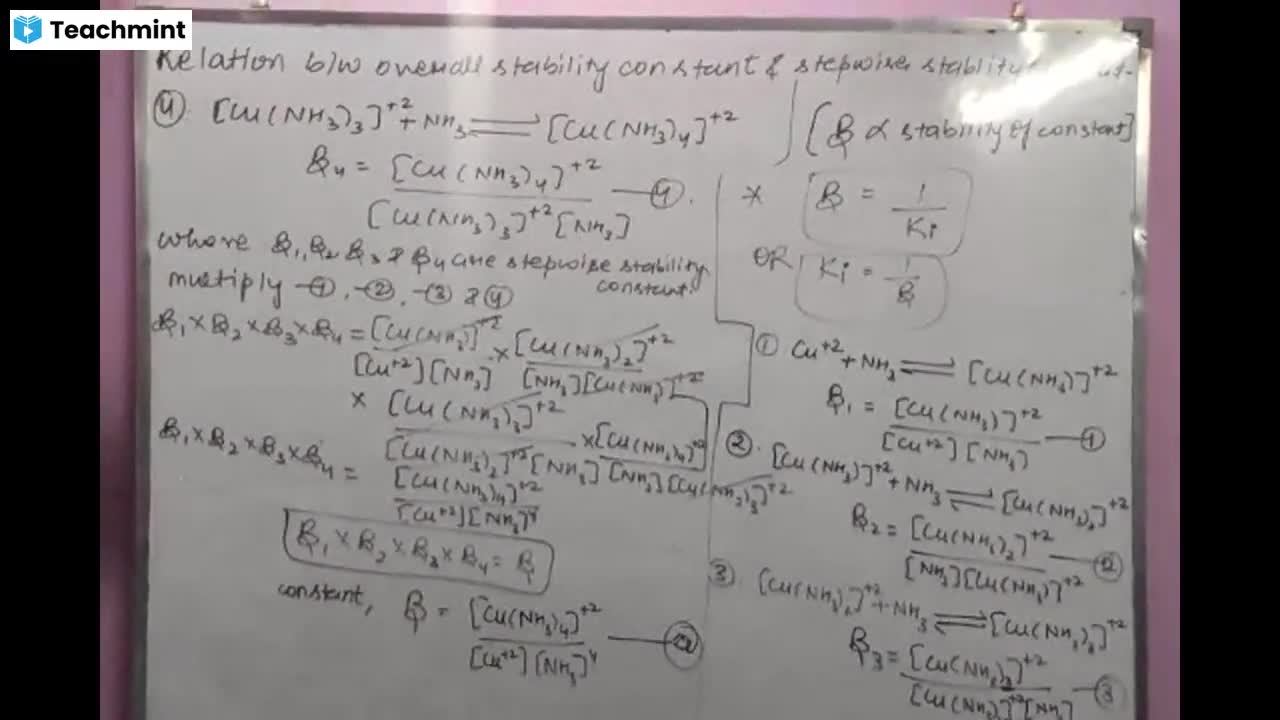 Teachmint
Relation b/w overall stability constant & stepwise stablity
④ [Cu(NH3)3]+2 + NH3 ⇌ [Cu(NH3)4]+2
[ß ∝ stability of constant]
ß4 = [Cu(NH3)4]+2 / [Cu(NH3)3]+2 [NH3] —④.
where ß1, ß2, ß3 & ß4 are stepwise stability constant.
multiply —①, —②, —③ & ④
ß1 × ß2 × ß3 × ß4 = [Cu(NH3)]+2 / [Cu+2] [NH3] × [Cu(NH3)2]+2 / [NH3] [Cu(NH3)]+2
× [Cu(NH3)3]+2 / [Cu(NH3)2]+2 [NH3] × [Cu(NH3)4]+2 / [NH3] [Cu(NH3)3]+2
ß1 × ß2 × ß3 × ß4 = [Cu(NH3)4]+2 / [Cu+2] [NH3]4
ß1 × ß2 × ß3 × ß4 = ß
constant, ß = [Cu(NH3)4]+2 / [Cu+2] [NH3]4 —ⓐ
* ß = 1 / Ki
OR Ki = 1 / ß
① Cu+2 + NH3 ⇌ [Cu(NH3)]+2
ß1 = [Cu(NH3)]+2 / [Cu+2] [NH3] —①
②. [Cu(NH3)]+2 + NH3 ⇌ [Cu(NH3)2]+2
ß2 = [Cu(NH3)2]+2 / [NH3] [Cu(NH3)]+2 —②
③. [Cu(NH3)2]+2 + NH3 ⇌ [Cu(NH3)3]+2
ß3 = [Cu(NH3)3]+2 / [Cu(NH3)2]+2 [NH3] —③